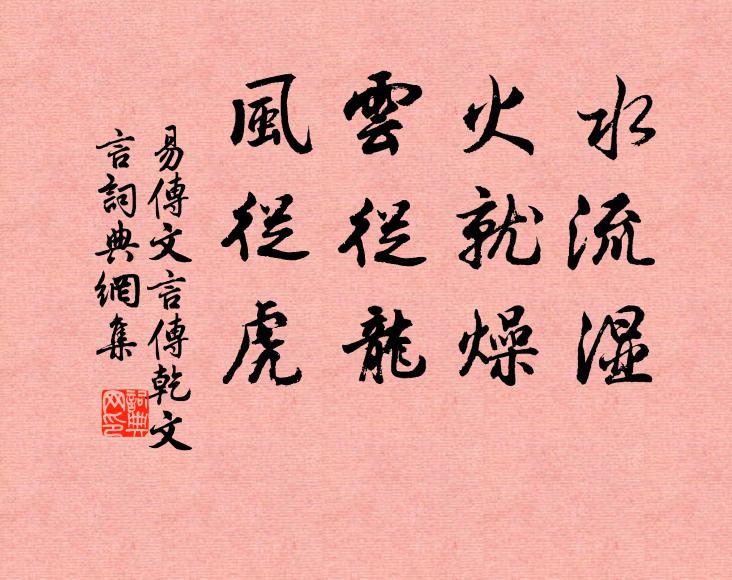 水流湿
火就燥
雲從龍
風從虎
易傳文言傳乾文
言詞典網集
詞典
网印